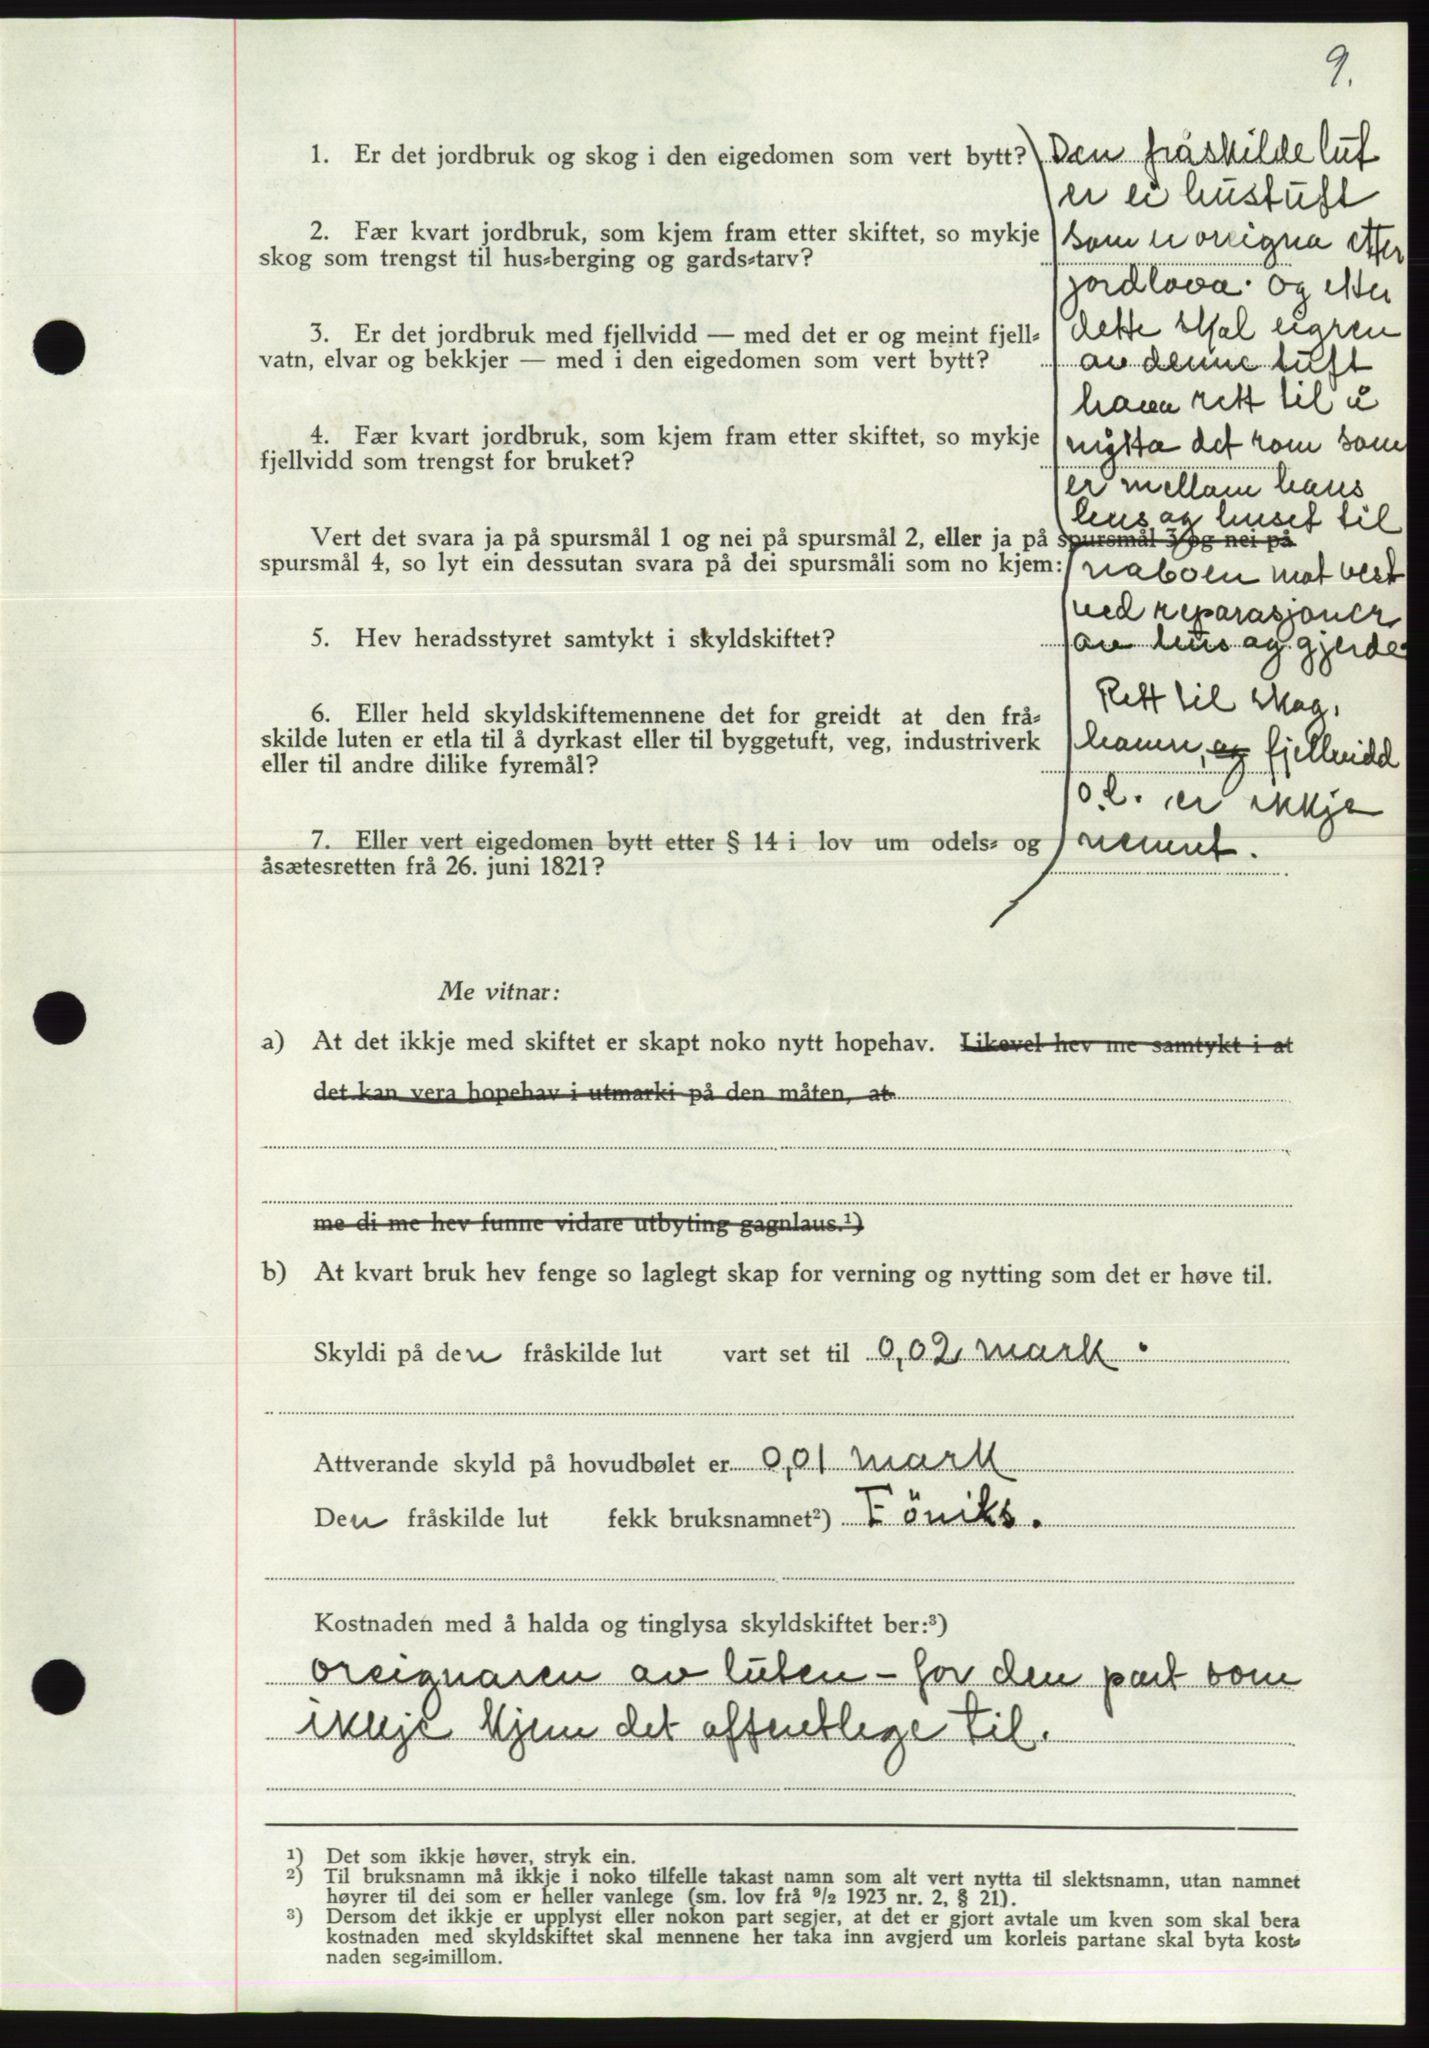 9.
1. Er det jordbruk og skog i den eigedomen som vert bytt?
2. Fær kvart jordbruk, som kjem fram etter skiftet, so mykje
skog som trengst til hus-berging og gards-tarv?
3. Er det jordbruk med fjellvidd — med det er og meint fjell-
vatn, elvar og bekkjer — med i den eigedomen som vert bytt?
4. Fær kvart jordbruk, som kjem fram etter skiftet, so mykje
fjellvidd som trengst for bruket?
Vert det svara ja på spursmål 1 og nei på spursmål 2, eller ja på spursmål 3 og nei på
spursmål 4, so lyt ein dessutan svara på dei spursmåli som no kjem:
5. Hev heradsstyret samtykt i skyldskiftet?
6. Eller held skyldskiftemennene det for greidt at den frå-
skilde luten er etla til å dyrkast eller til byggetuft, veg, industriverk
eller til andre dilike fyremål?
7. Eller vert eigedomen bytt etter § 14 i lov um odels- og
åsætesretten frå 26. juni 1821?
Den fråskilde lut
er ei hustuft
som er oreigna etter
jordlova. og etter
dette skal eigren
av denne tuft
hava rett til å
nytta det rom som
er mellom hans
hus og huset til
naboen mot vest
ved reparasjoner
av hus og gjerde.
Rett til skog,
hamn, og fjellvidd
o.l. er ikkje
nemnt.
Me vitnar:
a) At det ikkje med skiftet er skapt noko nytt hopehav. Likevel hev me samtykt i at
det kan vera hopehav i utmarki på den måten, at
me di me hev funne vidare utbyting gagnlaus.¹)
b) At kvart bruk hev fenge so laglegt skap for verning og nytting som det er høve til.
Skyldi på den fråskilde lut vart set til 0,02 mark.
Attverande skyld på hovudbølet er 0,01 mark
Den fråskilde lut fekk bruksnamnet²) Föniks.
Kostnaden med å halda og tinglysa skyldskiftet ber:³)
oreignaren av luten - for den part som
ikkje kjem det offentlege til.
¹) Det som ikkje høver, stryk ein.
²) Til bruksnamn må ikkje i noko tilfelle takast namn som alt vert nytta til slektsnamn, utan namnet
høyrer til dei som er heller vanlege (sm. lov frå 9/2 1923 nr. 2, § 21).
³) Dersom det ikkje er upplyst eller nokon part segjer, at det er gjort avtale um kven som skal bera
kostnaden med skyldskiftet skal mennene her taka inn avgjerd um korleis partane skal byta kost-
naden seg-imillom.